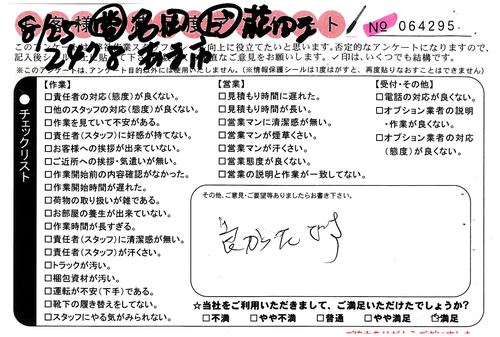 お客様満足度アンケート
No 064295
8/25
このアンケートは弊社作業スタッフの向上に役立てたいと思います。否定的なアンケートになりますので、
※このアンケートは、アンケート目的以外には使用いたしません。(※情報保護シールは1度はがすと、再度貼りなおすことはできません)
チェックリスト
【作業】
□責任者の対応(態度)が良くない。
□他のスタッフの対応(態度)が良くない。
□作業を見ていて不安がある。
□責任者(スタッフ)に好感が持てない。
□お客様への挨拶が出来ていない。
□ご近所への挨拶・気遣いが無い。
□作業開始前の内容確認がなかった。
□作業開始時間が遅れた。
□荷物の取り扱いが雑である。
□お部屋の養生が出来ていない。
□作業時間が長すぎる。
□責任者(スタッフ)に清潔感が無い。
□責任者(スタッフ)が汗くさい。
□トラックが汚い。
□梱包資材が汚い。
□運転が不安(下手)である。
□靴下の履き替えをしてない。
□スタッフにやる気がみられない。
【営業】
□見積もり時間に遅れた。
□見積もり時間が長い。
□営業マンに清潔感が無い。
□営業マンが煙草くさい。
□営業マンが汗くさい。
□営業態度が良くない。
□営業の説明と作業が一致してない。
【受付・その他】
□電話の対応が良くない。
□オプション業者の説明
・作業が良くない。
□オプション業者の対応
(態度)が良くない。
その他、ご意見・ご要望等ありましたらお書き下さい。
良かったです
☆当社をご利用いただきまして、ご満足いただけたでしょうか?
□不満 □やや不満 □普通 □やや満足 ☑満足